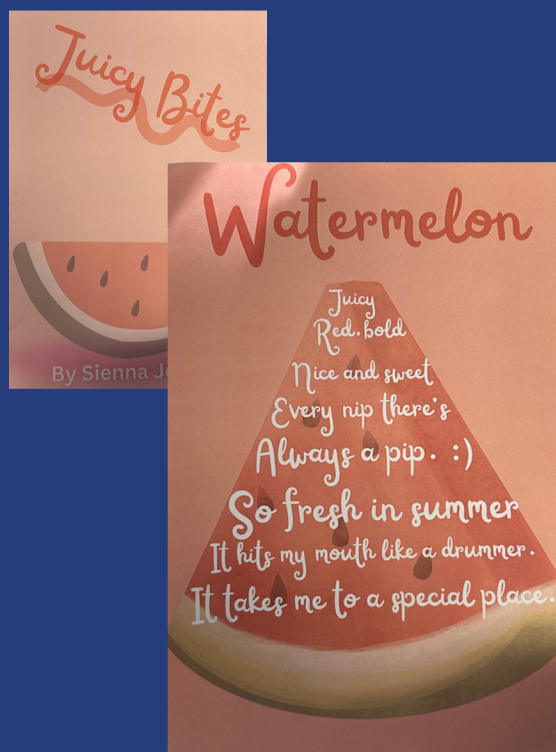 Juicy Bites
By Sienna
Watermelon
Juicy
Red. bold
Nice and sweet
Every nip there's
Always a pip. :)
So fresh in summer
It hits my mouth like a drummer.
It takes me to a special place.